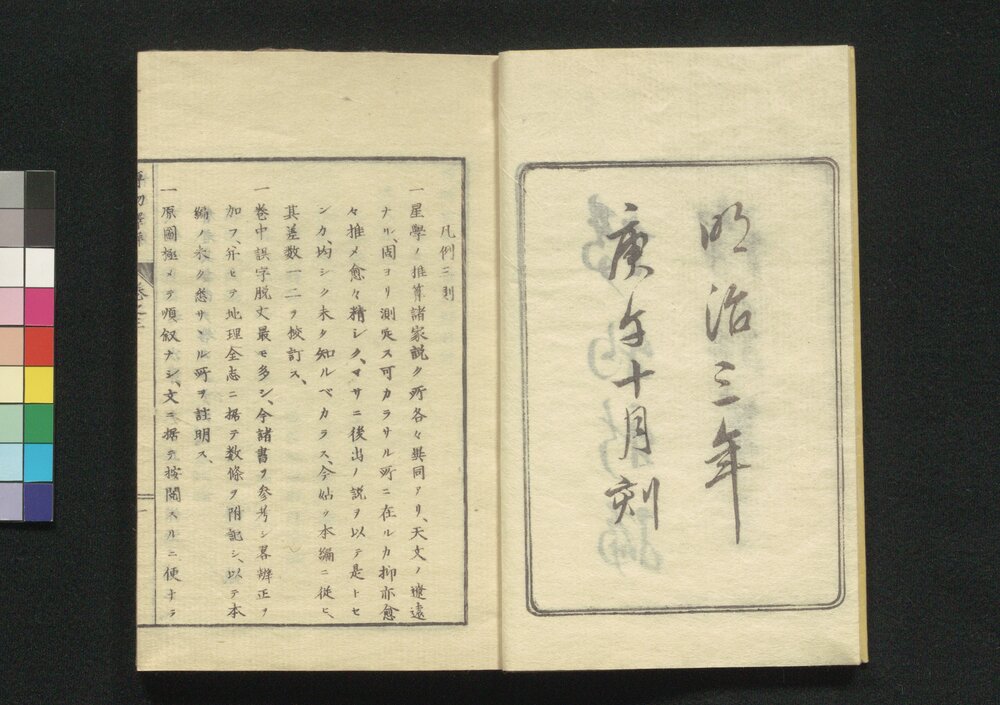 明治三年
庚午十月刻
凡例三則
一星學ノ推算諸家說ク所各々異同アリ、天文ノ遼遠
ナル、固ヨリ測定ス可カラサル所ニ在ルカ抑亦愈
々推メ愈々精シク、マサニ後出ノ説ヲ以テ是トセ
ンカ、均シク未タ知ルベカラス、今姑ク本編ニ従ヒ、
其差数一二ヲ校訂ス、
一卷中誤字脱文最モ多シ、今諸書ヲ参考シ畧辨正ヲ
加フ、并セテ地理全志ニ据テ数條ヲ附記シ、以テ本
編ノ未タ悉サヽル所ヲ註明ス、
一原圖極メテ順叙ナシ、文ニ据テ按閲スルニ便ナラ